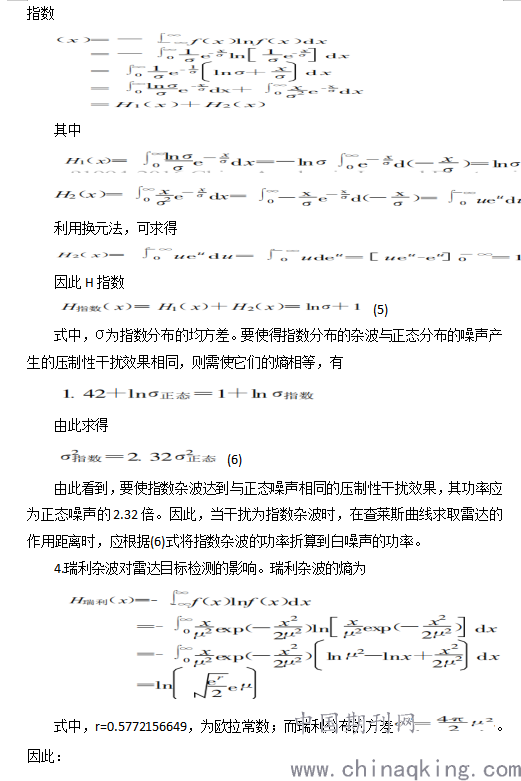 指数
(x)= — ∫f(x)lnf(x)dx
= — ∫₀^∞ 1/σ e^(-x/σ) ln[1/σ e^(-x/σ)] dx
= ∫₀^∞ 1/σ e^(-1/σ) (lnσ+ x/σ) dx
= ∫₀^∞ lnσ/σ e^(-x/σ) dx+ ∫₀^∞ x/σ² e^(-x/σ) dx
=H₁(x)+H₂(x)
其中
H₁(x)= ∫₀^∞ lnσ/σ e^(-x/σ) dx=—lnσ ∫₀^∞ e^(-x/σ) d(— x/σ)=lnσ
H₂(x)= ∫₀^∞ x/σ² e^(-x/σ) dx= ∫₀^∞ — x/σ e^(-x/σ) d(— x/σ)= ∫₀ ueᵘdu
利用换元法，可求得
H₂(x)= ∫₀ ueᵘdu= ∫₀ udeᵘ=[ueᵘ-eᵘ]₀^-∞=1
因此 H 指数
H指数(x)=H₁(x)+H₂(x)=lnσ+1 (5)
式中，σ为指数分布的均方差。要使得指数分布的杂波与正态分布的噪声产
生的压制性干扰效果相同，则需使它们的熵相等，有
1. 42+lnσ正态=1+ln σ指数
由此求得
σ²指数=2. 32σ²正态 (6)
由此看到，要使指数杂波达到与正态噪声相同的压制性干扰效果，其功率应
为正态噪声的2.32 倍。因此，当干扰为指数杂波时，在查莱斯曲线求取雷达的
作用距离时，应根据(6)式将指数杂波的功率折算到白噪声的功率。
4.瑞利杂波对雷达目标检测的影响。瑞利杂波的熵为
H瑞利(x)=- ∫₋∞^∞ f(x)lnf(x)dx
=- ∫₀^∞ x/μ² exp(— x²/2μ²)ln[x/μ² exp(— x²/2μ²)] dx
=- ∫₀^∞ x/μ² exp(— x²/2μ²)(ln μ²—lnx+ x²/2μ²) dx
=ln(√(eʳ/2) eμ)
式中，r=0.5772156649，为欧拉常数；而瑞利分布的方差 = 4-π/2 μ²。
因此：
中国期刊网
www.chinaqking.com